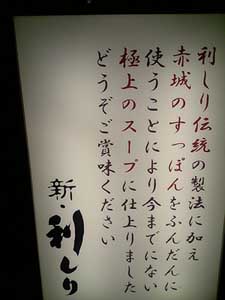 利しり伝統の製法に加え
赤城のすっぽんをふんだんに
使うことにより今までにない
極上のスープに仕上りました
どうぞご賞味ください
新・利しり